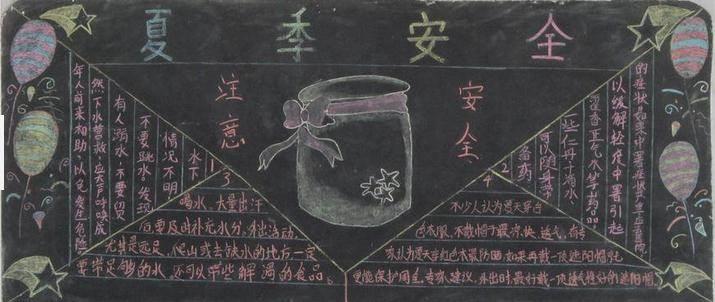 夏季安全
注意
安全
1
水下
情况不明
不要跳水、发现
有人溺水，不要贸
然下水营救，应大声呼唤成
年人前来相助，以免发生危险
2
备药
夏季随身带
些仁丹十滴水
藿香正气水等药品
以缓解轻度中暑引起
的症状如果中暑症状严重应
3
喝水、大量出汗
后要及时补充水分、外出活动
尤其是远足、爬山或去缺水的地方一定
要带足够的水，还可以带些解渴的食品。
4
不少人认为夏天穿白
色衣服、不戴帽子最凉快、透气，有专
家认为夏天穿红色衣服最防晒如果再戴一顶遮阳帽就
更能保护周全。专家建议，外出时最好戴一顶透气性好的遮阳帽